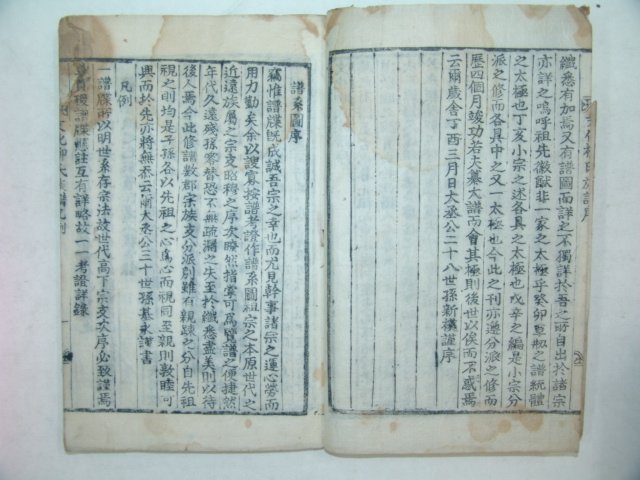 纖悉有加焉又有譜圖而詳之不獨詳於吾之所自出於諸宗
亦詳之嗚呼祖先徽猷非一家之太極乎癸卯亘刱之譜統體
之太極也丁亥小宗之述各具之太極也戊辛之編是小宗分
派之修而各具中之又一太極也今此之刊亦遵分派之修而
歷四個月竣功若夫纂大譜而會其極則後世以俟而不惑焉
云爾歲舍丁酉三月日大丞公二十八世孫新模謹序
譜系圖序
竊惟譜牒旣成誠吾宗之幸也而尤見幹事諸宗之運心勞而
用力勤矣余以謏寡按譜考證作譜系圖祖宗之本原世代之
近遠族屬之宗支昭穆之序次瞭然指掌可爲覽譜之便捷然
年代久遠殘孫零替恐不無疏漏之失至於纖悉盡美則以待
後人焉今此修譜數郡宗族支分派別雖有親踈之分自先祖
視之則均是子孫各以先祖之心爲心而視同至親則敦睦可
興而於先亦將無忝云爾大丞公三十世孫基永謹書
凡例
一譜牒所以明世系存宗法故世代高下宗支次序必致謹焉
譜牒註互有詳略故一一考證詳錄